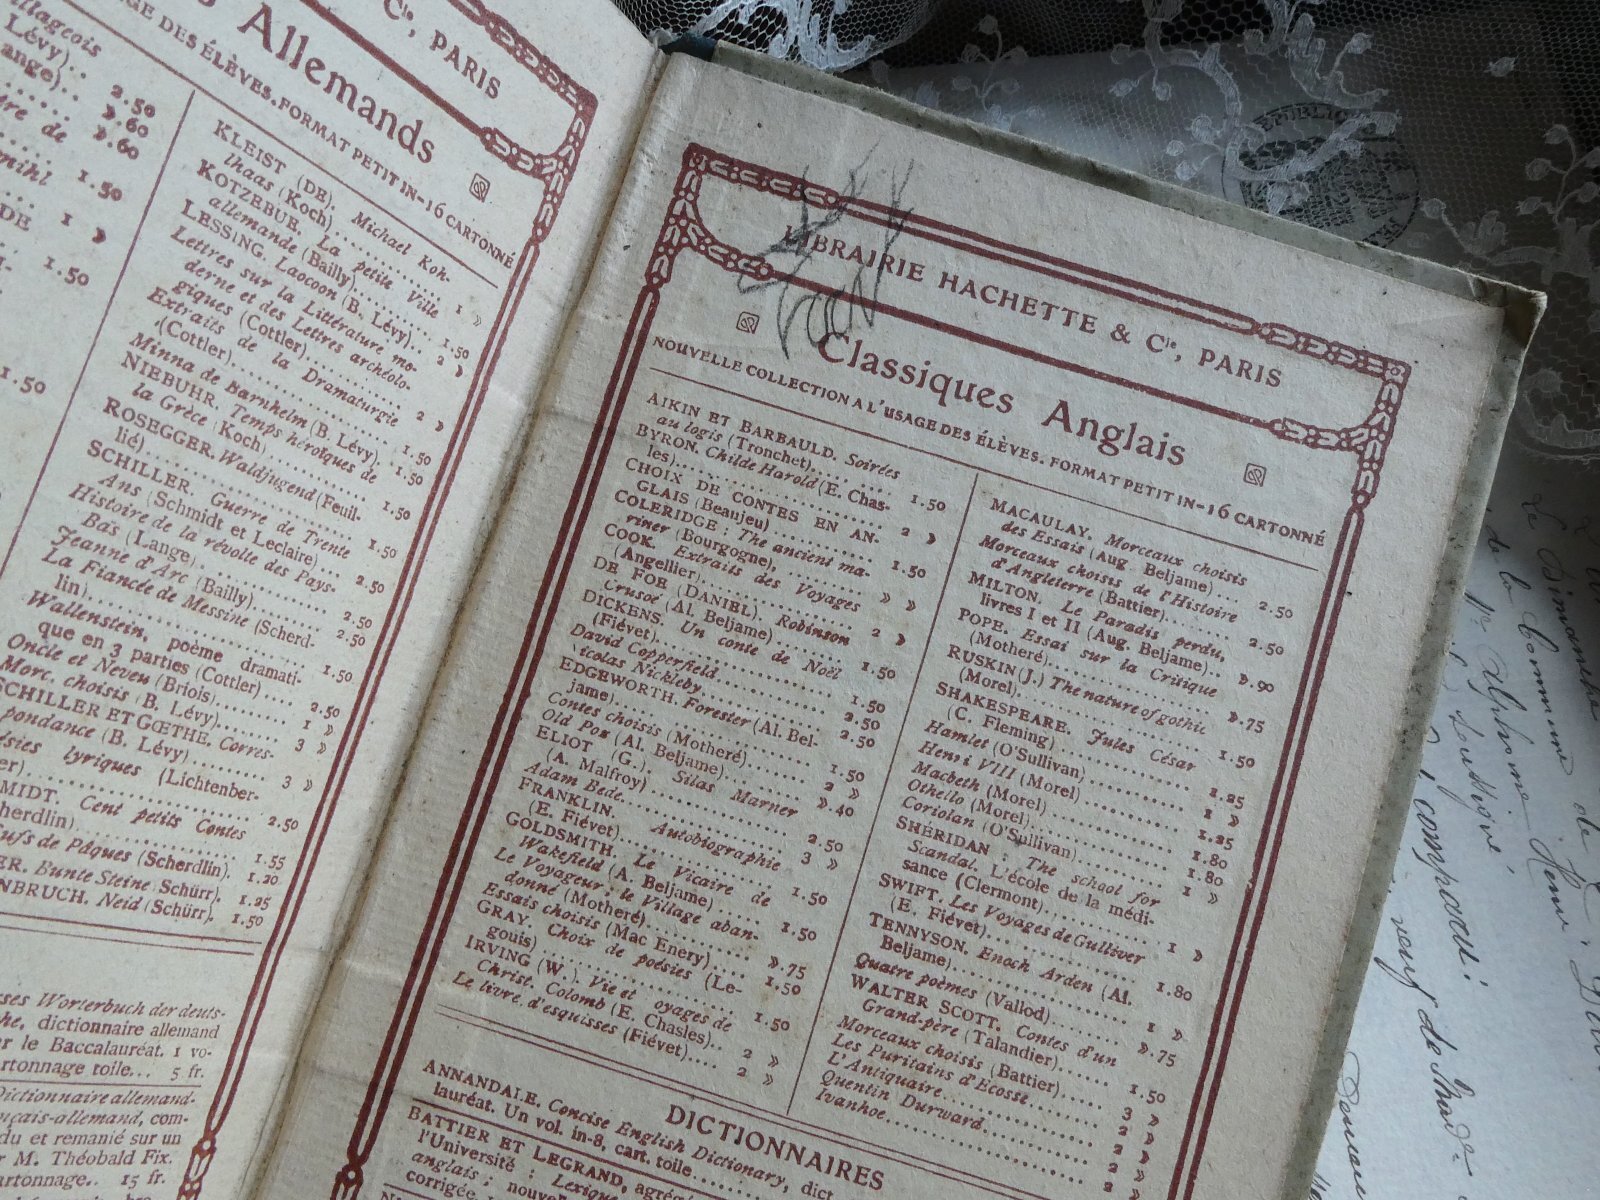 Cie, PARIS
Allemands
GE DES ÉLÈVES. FORMAT PETIT IN-16 CARTONNÉ
villageois
Lévy)..
ange).. 2.50
».60
ère de ».60
mihl
1.50
DE
1 »
1.50
1.50
KLEIST (DE). Michael Koh-
lhaas (Koch)........... 1 »
KOTZEBUE. La petite Ville
allemande (Bailly)....... 1.50
LESSING. Laocoon (B. Lévy).. 2 »
Lettres sur la Littérature mo-
derne et des Lettres archéolo-
giques (Cottler)........... 2 »
Extraits de la Dramaturgie
(Cottler)................ 1.50
Minna de Barnhelm (B. Lévy) . 1.50
NIEBUHR. Temps héroïques de
la Grèce (Koch)........... 1.50
ROSEGGER. Waldjugend (Feuil-
lié).................. 1.50
SCHILLER. Guerre de Trente
Ans (Schmidt et Leclaire)... 2.50
Histoire de la révolte des Pays-
Bas (Lange).............. 2.50
Jeanne d'Arc (Bailly)........ 2.50
La Fiancée de Messine (Scherd-
lin).................. 1.50
Wallenstein, poème dramati-
que en 3 parties (Cottler).... 2.50
Oncle et Neveu (Briois)....... 1 »
Morc. choisis (B. Lévy)....... 3 »
SCHILLER ET GŒTHE. Corres-
pondance (B. Lévy)......... 3 »
sies lyriques (Lichtenber-
er).................. 2.50
MIDT. Cent petits Contes
herdlin)............... 1.55
ufs de Pâques (Scherdlin). 1.20
ER. Bunte Steine (Schürr). 1.25
NBRUCH. Neid (Schürr). 1.50
ses Worterbuch der deuts-
he, dictionnaire allemand
r le Baccalauréat. 1 vo-
artonnage toile... 5 fr.
Dictionnaire allemand-
nçais-allemand, com-
du et remanié sur un
r M. Théobald Fix.
artonnage.. 15 fr.
LIBRAIRIE HACHETTE & Cie, PARIS
Classiques Anglais
NOUVELLE COLLECTION A L'USAGE DES ÉLÈVES. FORMAT PETIT IN-16 CARTONNÉ
AIKIN ET BARBAULD. Soirées
au logis (Tronchet).......... 1.50
BYRON. Childe Harold (E. Chas-
les).................. 2 »
CHOIX DE CONTES EN AN-
GLAIS (Beaujeu) .......... 1.50
COLERIDGE : The ancient ma-
riner (Bourgogne), ........ » »
COOK. Extraits des Voyages
(Angellier)............... 2 »
DE FOE (DANIEL). Robinson
Crusoé (Al. Beljame) ....... 1.50
DICKENS. Un conte de Noël
(Fiévet)................. 1.50
David Copperfield.......... 2.50
Nicolas Nickleby.......... 2.50
EDGEWORTH. Forester (Al. Bel-
jame).................. 1.50
Contes choisis (Motheré)...... 2 »
Old Poz (Al. Beljame)........ ».40
ELIOT (G.). Silas Marner
(A. Malfroy) ............. 2.50
Adam Bede............... 3 »
FRANKLIN. Autobiographie
(E. Fiévet)............... 1.50
GOLDSMITH. Le Vicaire de
Wakefield (A. Beljame) ..... 1.50
Le Voyageur; le Village aban-
donné (Motheré).......... ».75
Essais choisis (Mac Enery).... 1.50
GRAY. Choix de poésies (Le-
gouis) ................. 1.50
IRVING (W.). Vie et oyages de
Christ. Colomb (E. Chasles).. 2 »
Le livre d'esquisses (Fiévet).... 2 »
MACAULAY. Morceaux choisis
des Essais (Aug. Beljame)... 2.50
Morceaux choisis de l'Histoire
d'Angleterre (Battier)....... 2.50
MILTON. Le Paradis perdu,
livres I et II (Aug. Beljame).. ».90
POPE. Essai sur la Critique
(Motheré)............... ».75
RUSKIN (J.) The nature of gothic
(Morel)................. 1.50
SHAKESPEARE. Jules César
(C. Fleming) ............. 1.25
Hamlet (O'Sullivan)......... 1 »
Henri VIII (Morel)......... 1.25
Macbeth (Morel) .......... 1.80
Othello (Morel)............ 1.80
Coriolan (O'Sullivan)........ 1 »
SHÉRIDAN : The school for
Scandal. L'école de la médi-
sance (Clermont).......... 1 »
SWIFT. Les Voyages de Gulliver
(E. Fiévet)............... 1.80
TENNYSON. Enoch Arden (Al.
Beljame)................ 1 »
Quatre poèmes (Vallod)...... ».75
WALTER SCOTT. Contes d'un
Grand-père (Talandier)...... 1.50
Morceaux choisis (Battier)..... 3 »
Les Puritains d'Ecosse....... 2 »
L'Antiquaire............. 2 »
Quentin Durward.......... 2 »
Ivanhoe................ 2 »
DICTIONNAIRES
ANNANDALE. Concise English Dictionary, dict
lauréat. Un vol. in-8, cart. toile
BATTIER ET LEGRAND, agrég
l'Université : Lexique
anglais; nouve
corrigée,